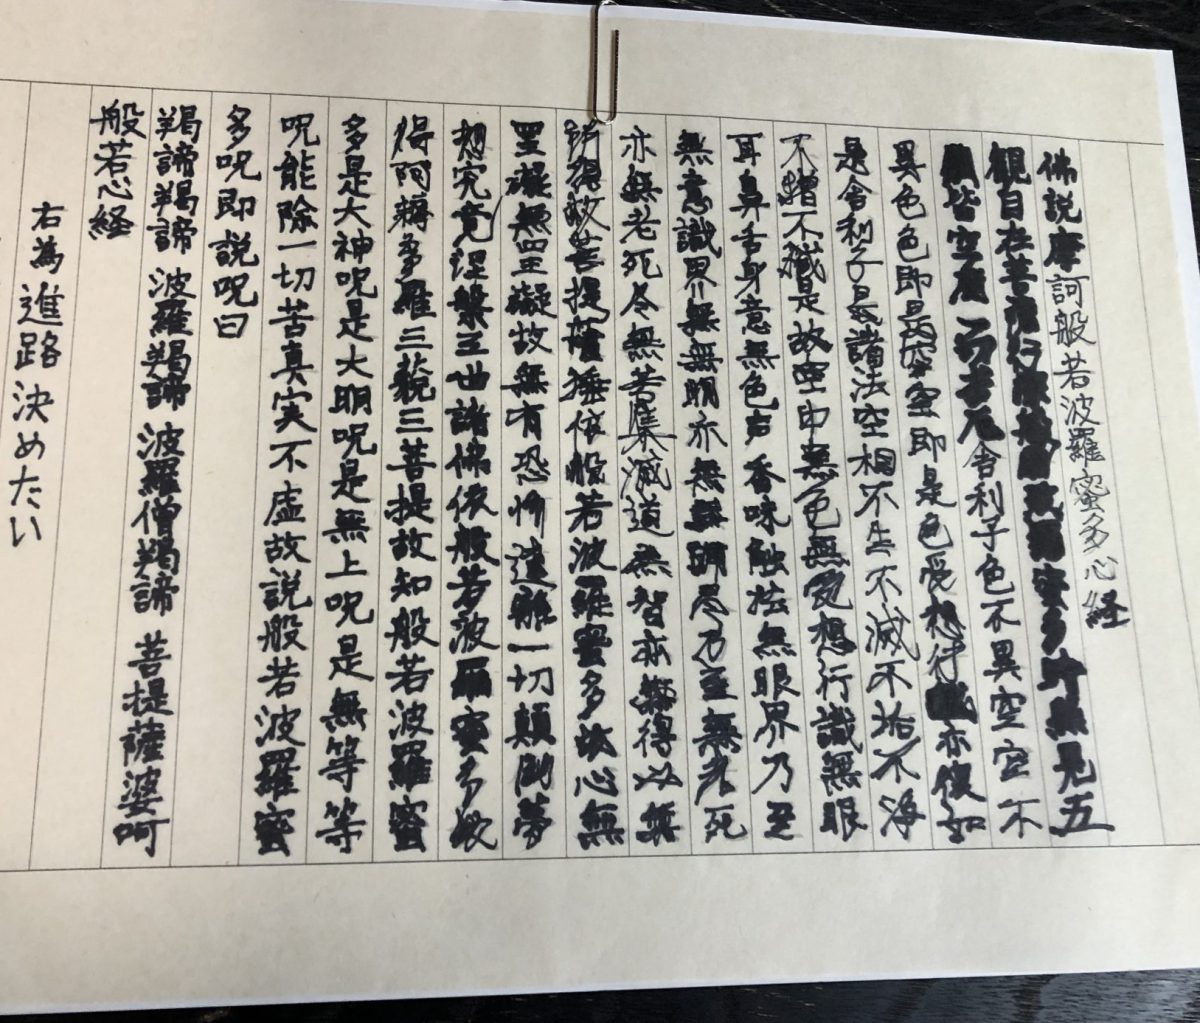 佛説摩訶般若波羅蜜多心経
観自在菩薩行深般若波羅蜜多時照見五
皆空度一切苦厄舎利子色不異空空不
異色色即是空空即是色受想行識亦復如
是舎利子是諸法空相不生不滅不垢不浄
不増不減是故空中無色無受想行識無眼
耳鼻舌身意無色声香味触法無眼界乃至
無意識界無無明亦無無明尽乃至無老死
亦無老死尽無苦集滅道無智亦無得以無
所得故菩提薩埵依般若波羅蜜多故心無
罣礙無罣礙故無有恐怖遠離一切顛倒夢
想究竟涅槃三世諸佛依般若波羅蜜多故
得阿耨多羅三藐三菩提故知般若波羅蜜
多是大神呪是大明呪是無上呪是無等等
呪能除一切苦真実不虚故説般若波羅蜜
多呪即説呪曰
羯諦羯諦 波羅羯諦 波羅僧羯諦 菩提薩婆呵
般若心経
右為進路決めたい